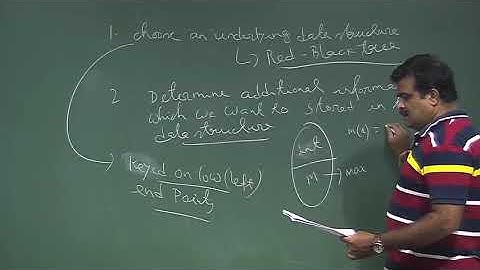 1. Choose an underlying data structure
↳ Red-Black tree
2. Determine additional informa
which we want to stored in
data structure
Keyed on low (left)
end Points
int
M → max
m(x) =